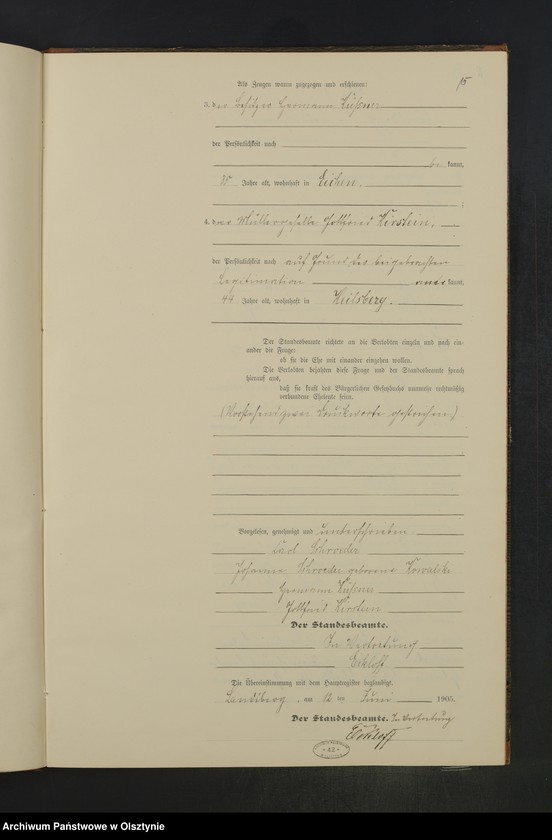 15
Als Zeugen waren zugezogen und erschienen:
3. der Besitzer Hermann Küßner
der Persönlichkeit nach
be kannt,
25 Jahre alt, wohnhaft in Eichen.
;
4. der Müllergeselle Gottfried Kirstein,
der Persönlichkeit nach auf Grund der beigebrachten
Legitimation anerkannt,
44 Jahre alt, wohnhaft in Heilsberg.
Der Standesbeamte richtete an die Verlobten einzeln und nach ein-
ander die Frage:
ob sie die Ehe mit einander eingehen wollen.
Die Verlobten bejahten diese Frage und der Standesbeamte sprach
hierauf aus,
daß sie kraft des Bürgerlichen Gesetzbuchs nunmehr rechtmäßig
verbundene Eheleute seien.
(Vorstehend zwei Druckworte gestrichen)
Vorgelesen, genehmigt und unterschrieben
Carl Schroeder
Johanne Schroeder geborene
Hermann Küßner
Gottfried Kirstein
Der Standesbeamte.
In Vertretung
Die Übereinstimmung mit dem Hauptregister beglaubigt.
Landsberg, am 12 ten Juni 1905.
Der Standesbeamte. In Vertretung
42
Archiwum Państwowe w Olsztynie